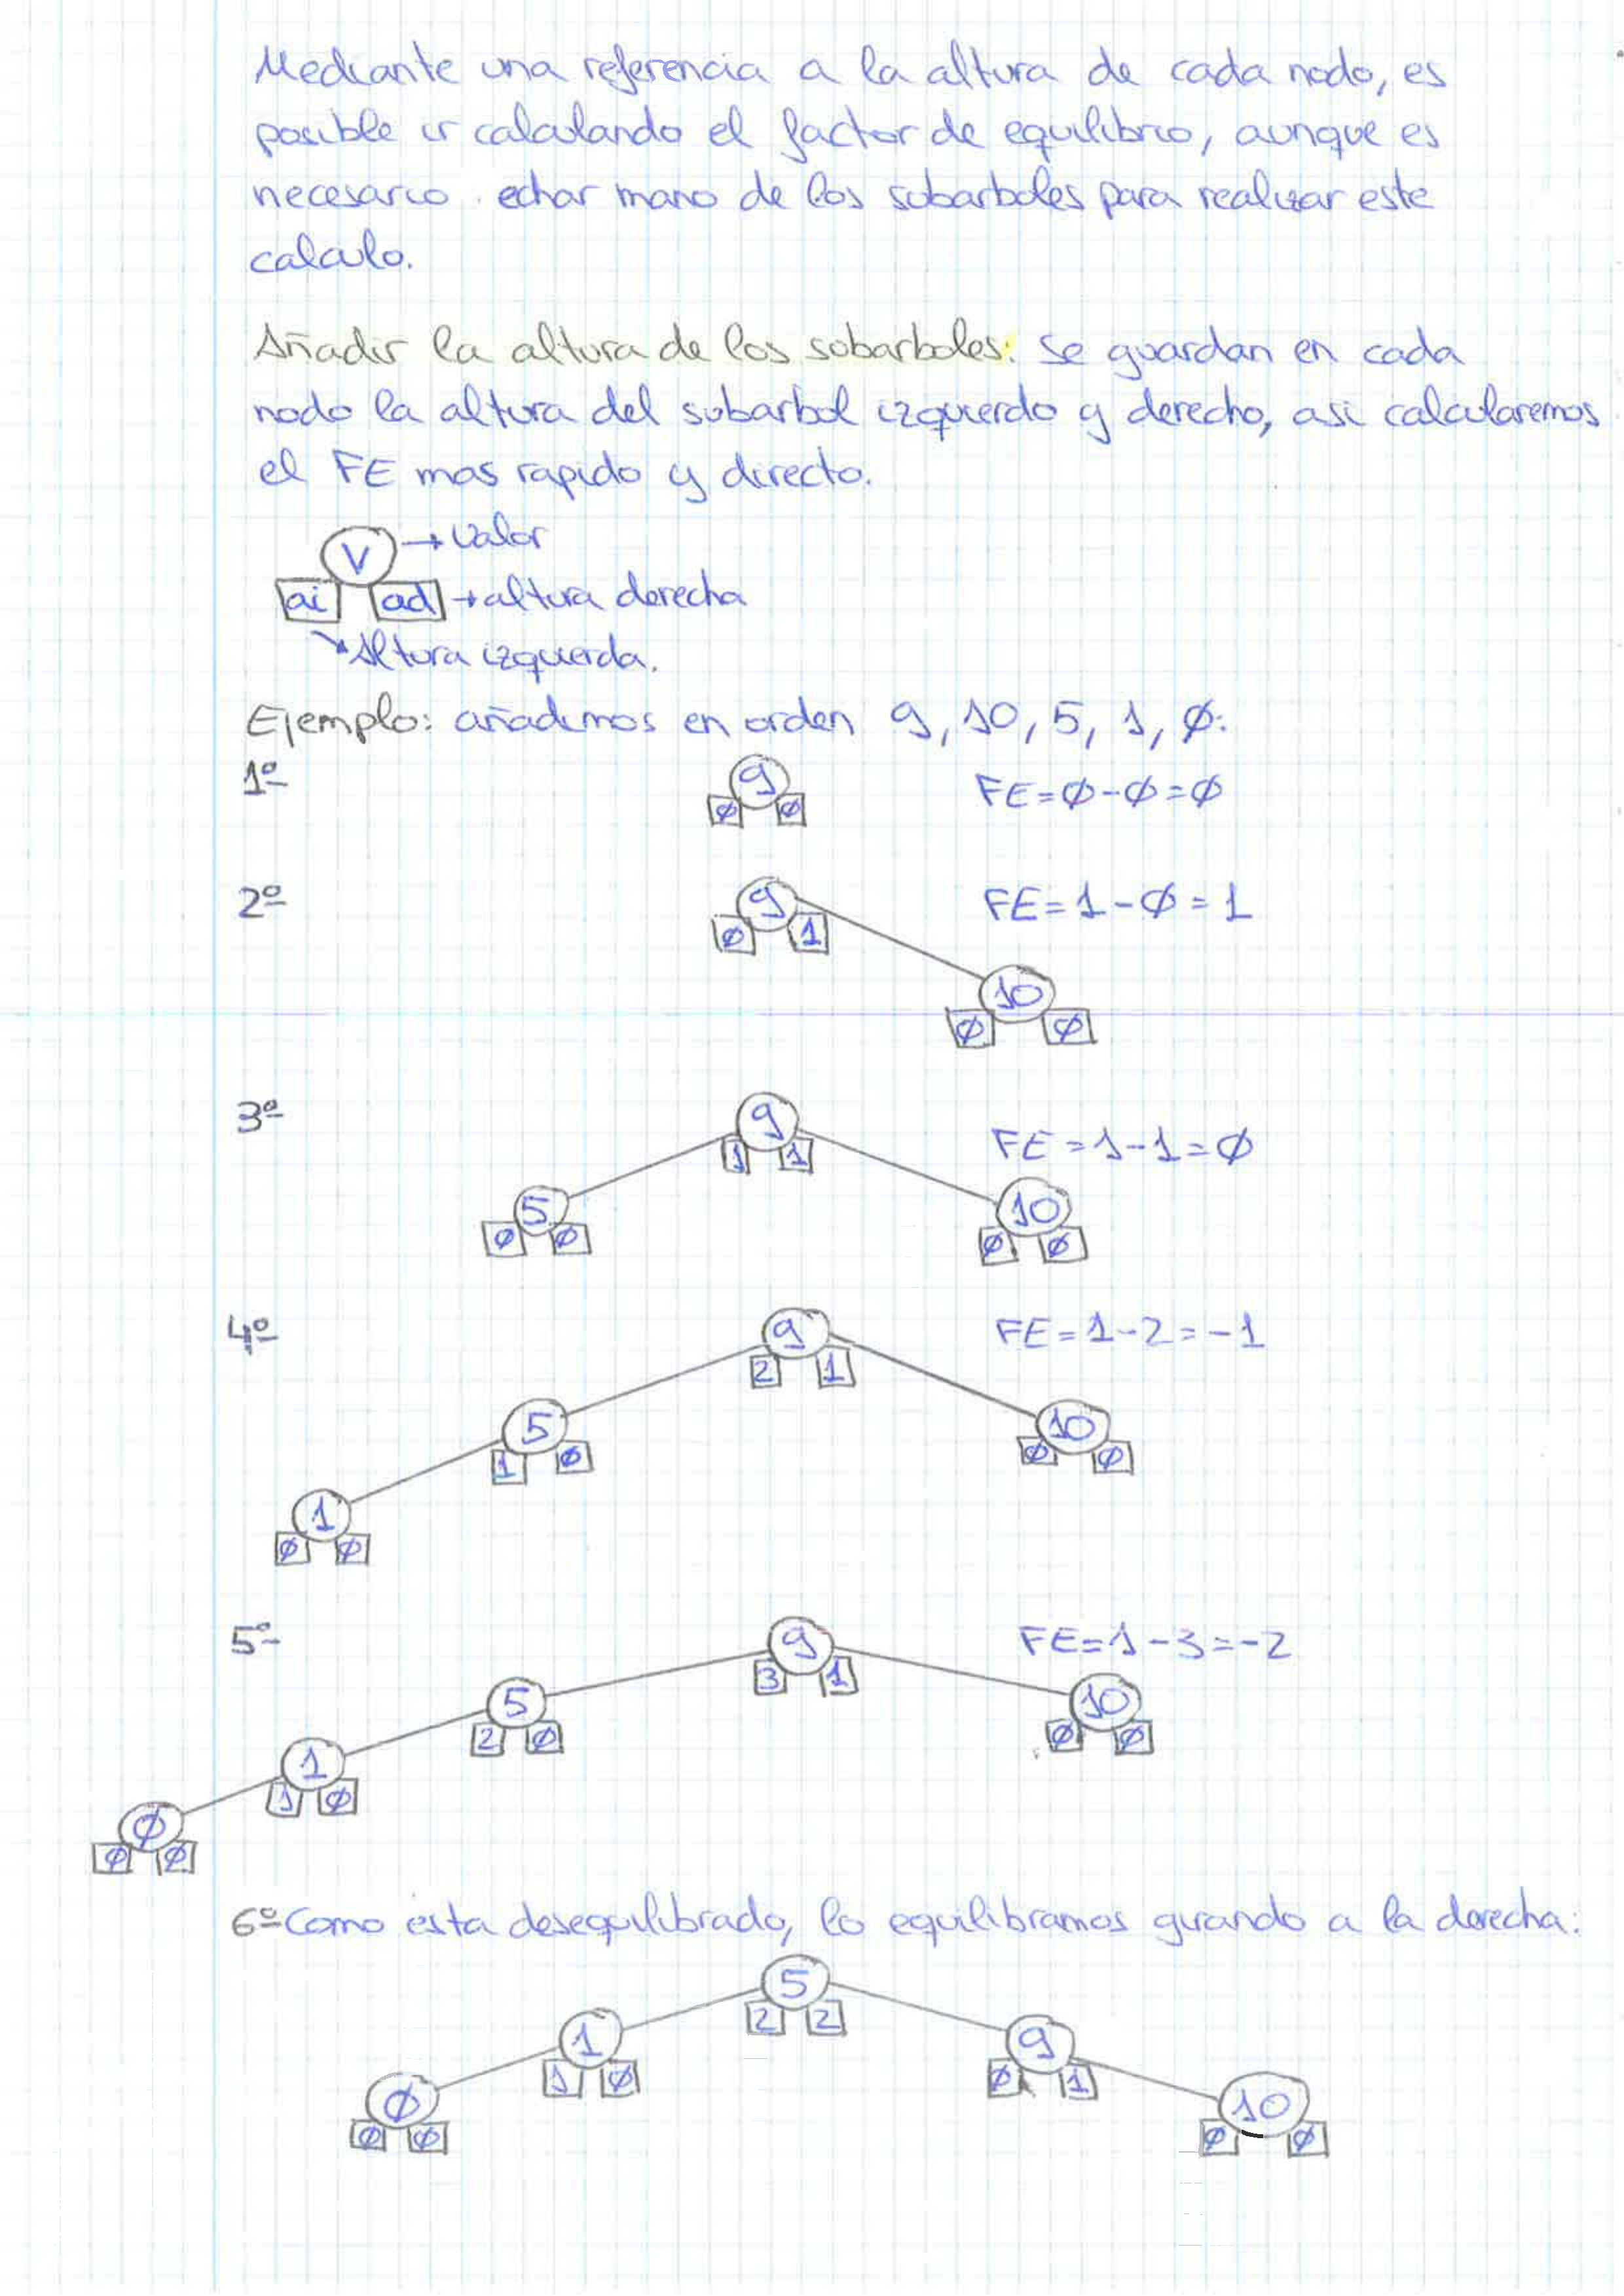 Mediante una referencia a la altura de cada nodo, es
posible ir calculando el factor de equilibrio, aunque es
necesario echar mano de los subarboles para realizar este
calculo.
Añadir la altura de los subarboles: se guardan en cada
nodo la altura del subarbol izquierdo y derecho, asi calcularemos
el FE mas rapido y directo.
V → Valor
ai ad → altura derecha
Altura izquierda.
Ejemplo: añadimos en orden 9, 10, 5, 1, Ø:
1º 9 FE=Ø-Ø=Ø
Ø Ø
2º 9 FE=1-Ø=1
Ø 1
10
Ø Ø
3º 9 FE=1-1=Ø
1 1
5 10
Ø Ø Ø Ø
4º 9 FE=1-2=-1
2 1
5 10
1 Ø Ø Ø
1
Ø Ø
5º 9 FE=1-3=-2
3 1
5 10
2 Ø Ø Ø
1
1 Ø
Ø
Ø Ø
6º Como esta desequilibrado, lo equilibramos girando a la derecha:
5
2 2
1 9
1 Ø Ø 1
Ø 10
Ø Ø Ø Ø